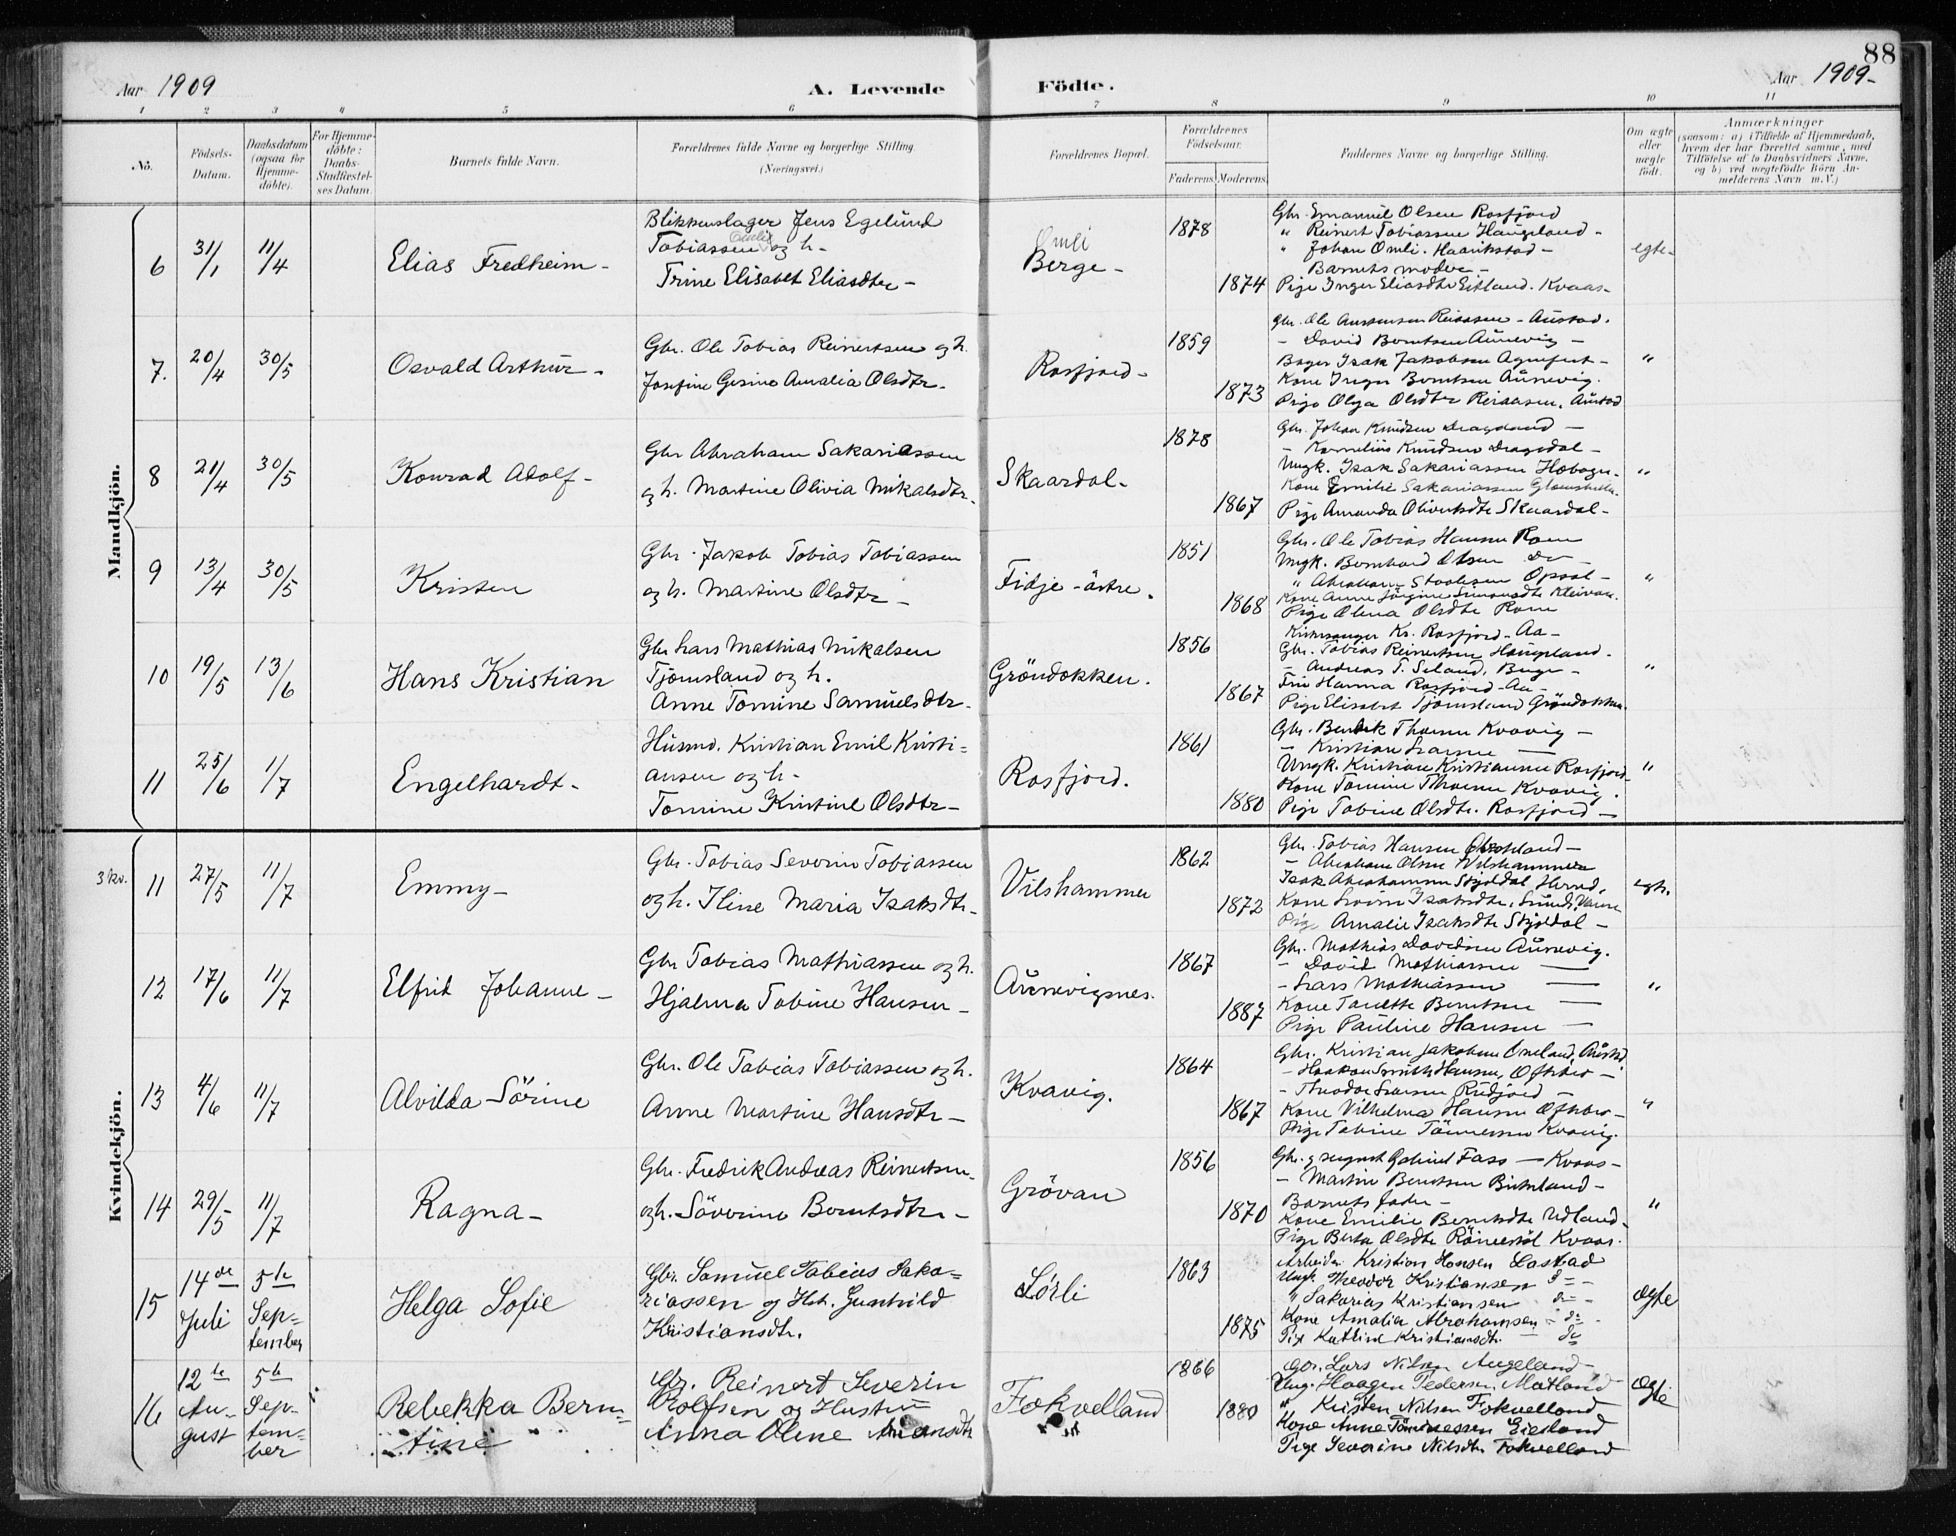 88
Aar 1909
A. Levende
Födte.
Aar 1909-
1 2 3 4 5 6 7 8 9 10 11
No.
Födsels-
Datum.
Daabsdatum
(ogsaa for
Hjemme-
döbte).
For Hjemme-
döbte:
Daabs-
Stadfæstel-
ses Datum.
Barnets fulde Navn.
Forældrenes fulde Navne og borgerlige Stilling.
(Næringsvei.)
Forældrenes Bopæl.
Forældrenes
Födselsaar.
Faderens. Moderens.
Faddernes Navne og borgerlige Stilling.
Om ægte
eller
uægte
födt.
Anmærkninger
(saasom: a) i Tilfælde af Hjemmedaab,
hvem der har forrettet samme, med
Tilföielse af to Daabsvidners Navne,
og b) ved uægtefödte Börn An-
melderens Navn m. V.)
Mandkjön.
6
31/1
11/4
Elias Fredheim -
Blikkenslager Jens Egelund
Tobiassen Omli og h-
Trine Elisabet Eliasdtr -
Omli
Berge -
1878
1874
Gbr. Emanuel Olsen Rosfjord
" Reinert Tobiassen Haugeland -
" Johan Omli. Haarikstad -
Barnets moder -
Pige Inger Eliasdtr Eitland. Kvaas -
egte -
7.
20/4
30/5
Osvald Arthur -
Gbr. Ole Tobias Reinertsen og h.
Josefine Gesine Amalia Olsdtr -
Rosfjord -
1859
1873
Gbr. Ole Austensen Reiaasen - Austad.
- David Berntsen Aunevig -
Bager Isak Jakobsen Agnefest -
Kone Inger Berntsen Aunevig.
Pige Olga Olsdtr Reiaasen, Austad
"
8
21/4
30/5
Konrad Adolf -
Gbr Abraham Sakariassen
og h. Martine Olivia Mikalsdtr -
Skaardal -
1878
1867
Gbr. Johan Knudsen Dragdal -
- Kornelius Knudsen Dragdal -
Ungk. Isak Sakariassen
Kone Emilie Sakariassen
Pige Amanda Olivesdtr Skaardal -
"
9
13/4
30/5
Kristen
Gbr. Jakob Tobias Tobiassen
og h. Martine Olsdtr -
Fidje - östre.
1851
1868
Gbr. Ole Tobias Hansen Rom
Ungk. Bernhard Olsen Do -
" Abraham Opsal -
Kone Anne Jörgine Simonsdtr Kleivan.
Pige Olena Olsdtr Rom
"
10
19/5
13/6
Hans Kristian
Gbr Lars Mathias Mikalsen
Tjomsland og h.
Anne Tomine Samuelsdtr -
Gröndokken.
1856
1867
Kirkesanger Kr. Rosfjord - Aa -
Gbr. Tobias Reinertsen Haugeland -
- Andreas T. Seland, Berge -
Fru Hanna Rosfjord - Aa -
Pige Elisabet Tjomsland Gröndokken
"
11
25/6
1/7
Engelhardt -
Husmd. Kristian Emil Kristi=
ansen og h -
Tomine Kristine Olsdtr -
Rosfjord.
1861
1880
Gbr. Bendik Thorsen Kvavig -
- Kristian Larsen -
Ungk. Kristian Kristiansen Rosfjord -
Kone Tomine Thorsen Kvavig.
Pige Tobine Olsdtr. Rosfjord -
"
Kvindekjön.
3 kv.
11
27/5
11/7
Emmy -
Gbr. Tobias Severin Tobiassen
og h. Iline Maria Isaksdtr -
Vilshammer
1862
1872
Gbr. Tobias Hansen
- Abraham Olsen Vilshammer
Isak Abrahamsen Skjoldal Herred,
Kone Isaksdtr, Vanse
Pige Amalie Isaksdtr Skjoldal -
egte.
12
17/6
11/7
Elfrid Johanne -
Gbr Tobias Mathiassen og h.
Hjalma Tobine Hansen -
Aunevigsnes.
1867
1887
Gbr. Mathias Davidsen Aunevig.
- David Mathiassen -
- Lars Mathiassen -
Kone Berntsen -
Pige Pauline Hansen -
"
13
4/6
11/7
Alvilda Sörine
Gbr. Ole Tobias Tobiassen og h.
Anne Martine Hansdtr -
Kvavig.
1864
1867
Gbr. Kristian Jakobsen Omland, Austad
- Haakon Smith Hansen, Ofteboo -
- Theodor Larsen
Kone Vilhelma Hansen Ofteboo -
Pige Tobine Tönnessen Kvavig.
"
14
29/5
11/7
Ragna -
Gbr. Fredrik Andreas Reinertsen
og h. Söverine Berntsdtr -
Grövan
1856
1870
Gbr. August Gabriel Fass - Kvaas -
- Martin Berntsen Birkeland -
Barnets fader -
Kone Emilie Berntsdtr Udland -
Pige Berta Olsdtr Kvaas.
"
15
14de
Juli
5te
Sep=
tember
Helga Sofie
Gbr. Samuel Tobias Saka=
riassen og Hst. Gunhild
Kristiansdtr.
Lörli
1863
1875
Arbeider Kristian Hansen Lastad
Ungk. Theodor Kristiansen do -
" Sakarias Kristiansen do -
Kone Amalia Abrahamsen - do -
Pige Katrine Kristiansdtr. - do
Ægte
16
12te
Au-
gust
5te
Sep-
tem-
ber
Rebekka Bern-
tine
Gbr. Reinert Severin
Rolfsen og Hustru
Anna Oline
Fokvelland
1866
1880
Gbr. Lars Nilsen Augeland -
Ung. Haagen Pedersen Matland
" Kristen Nilsen Fokvelland
Kone Anne Tönnessen Eigeland
Pige Severine Nilsdtr. Fokvelland
Ægte